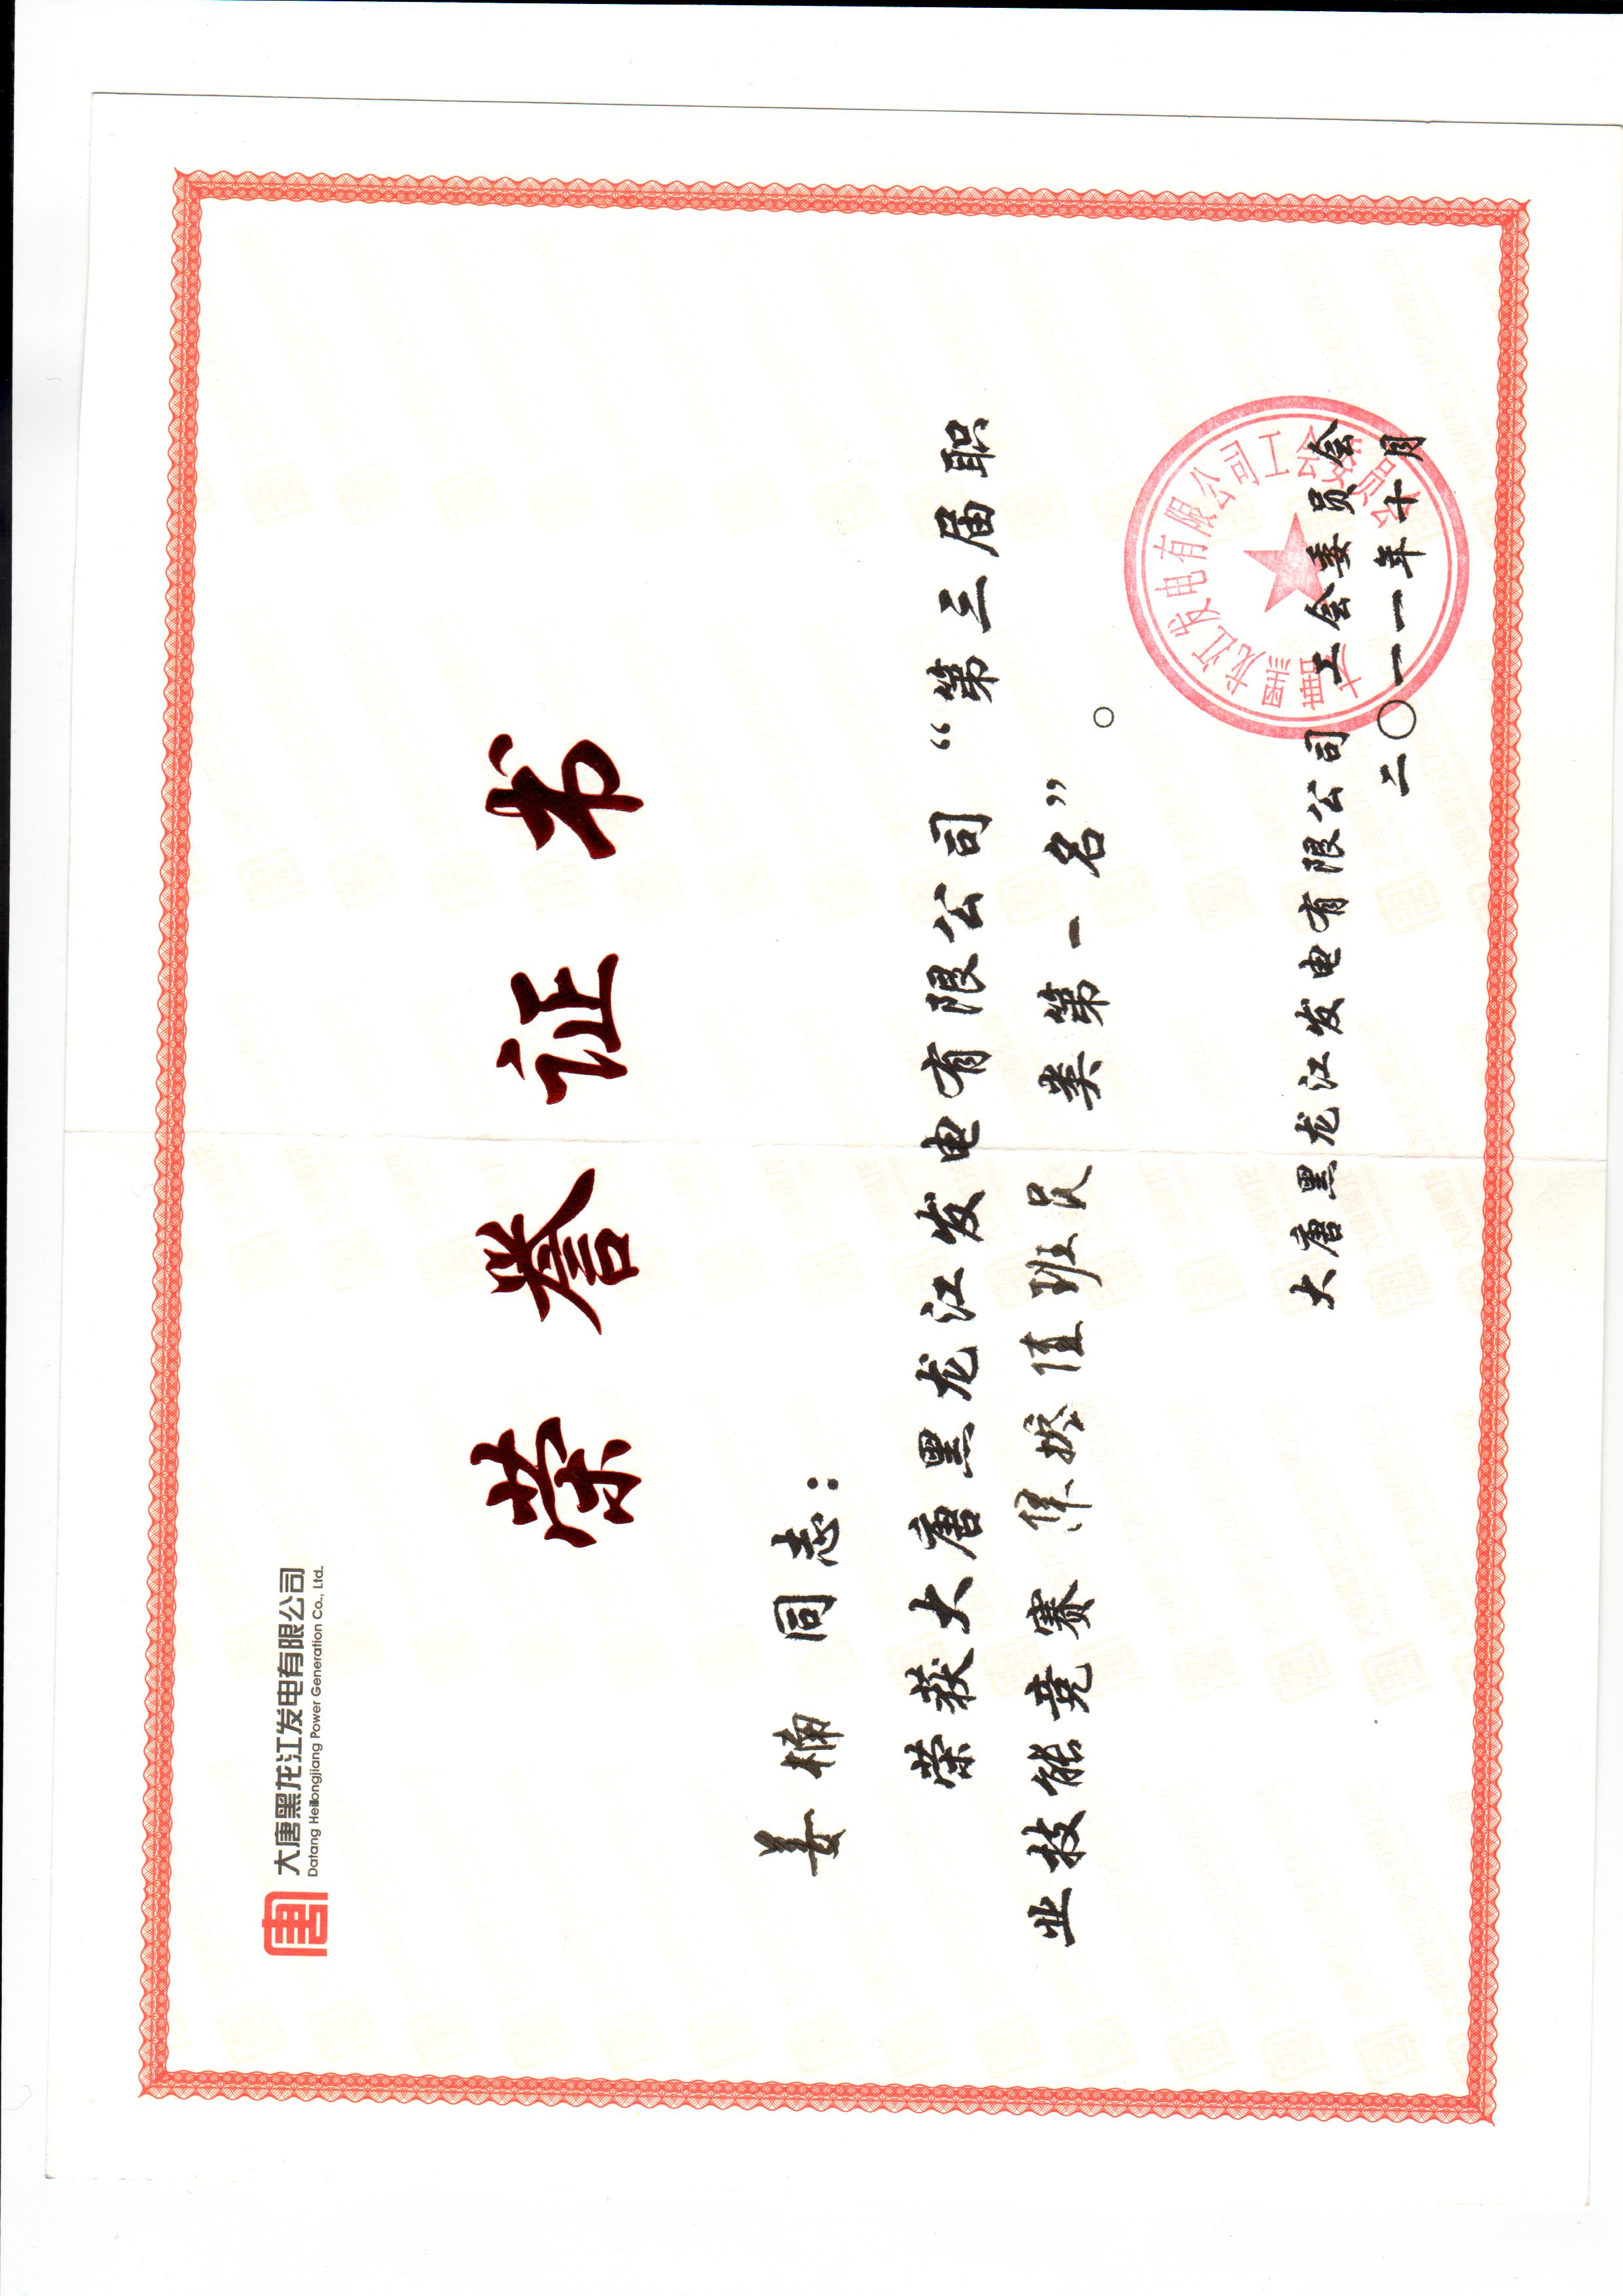 大唐黑龙江发电有限公司
Datang Heilongjiang Power Generation Co., Ltd.
荣誉证书
姜楠 同志：
荣获大唐黑龙江发电有限公司“第三届职
业技能竞赛 集控值班员 类第一名”。
大唐黑龙江发电有限公司 工会委员会
二〇一一年十月
大唐黑龙江发电有限公司工会委员会